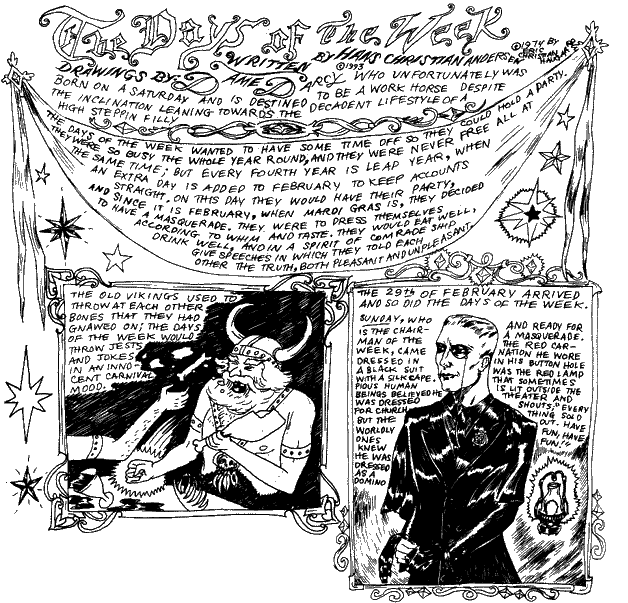 The Days of the Week
WRITTEN BY HANS CHRISTIAN ANDERSEN
©1974 BY ERIC CHRISTIAN HAUGAARD
DRAWINGS BY: DAME DARCY ©1993 WHO UNFORTUNATELY WAS
BORN ON A SATURDAY AND IS DESTINED TO BE A WORK HORSE DESPITE
THE INCLINATION LEANING TOWARDS THE DECADENT LIFESTYLE OF A
HIGH STEPPIN FILLY
THE DAYS OF THE WEEK WANTED TO HAVE SOME TIME OFF SO THEY COULD HOLD A PARTY.
THEY WERE SO BUSY THE WHOLE YEAR ROUND, AND THEY WERE NEVER FREE ALL AT
THE SAME TIME; BUT EVERY FOURTH YEAR IS LEAP YEAR, WHEN
AN EXTRA DAY IS ADDED TO FEBRUARY TO KEEP ACCOUNTS
STRAIGHT. ON THIS DAY THEY WOULD HAVE THEIR PARTY,
AND SINCE IT IS FEBRUARY, WHEN MARDI GRAS IS, THEY DECIDED
TO HAVE A MASQUERADE. THEY WERE TO DRESS THEMSELVES
ACCORDING TO WHIM AND TASTE. THEY WOULD EAT WELL,
DRINK WELL, AND IN A SPIRIT OF COMRADE SHIP
GIVE SPEECHES IN WHICH THEY TOLD EACH
OTHER THE TRUTH, BOTH PLEASANT AND UNPLEASANT.
THE OLD VIKINGS USED TO
THROW AT EACH OTHER
BONES THAT THEY HAD
GNAWED ON; THE DAYS
OF THE WEEK WOULD
THROW JESTS
AND JOKES
IN AN INNO-
CENT CARNIVAL
MOOD.
THE 29TH OF FEBRUARY ARRIVED
AND SO DID THE DAYS OF THE WEEK.
SUNDAY, WHO
IS THE CHAIR-
MAN OF THE
WEEK, CAME
DRESSED IN
A BLACK SUIT
WITH A SILK CAPE.
PIOUS HUMAN
BEINGS BELIEVED HE
WAS DRESSED
FOR CHURCH
BUT THE
WORLDLY
ONES
KNEW
HE WAS
DRESSED
AS A
DOMINO
AND READY FOR
A MASQUERADE.
THE RED CAR-
NATION HE WORE
IN HIS BUTTON HOLE
WAS THE RED LAMP
THAT SOMETIMES
IS LIT OUTSIDE THE
THEATER AND
SHOUTS, "EVERY
THING SOLD
OUT. HAVE
FUN, HAVE
FUN!"